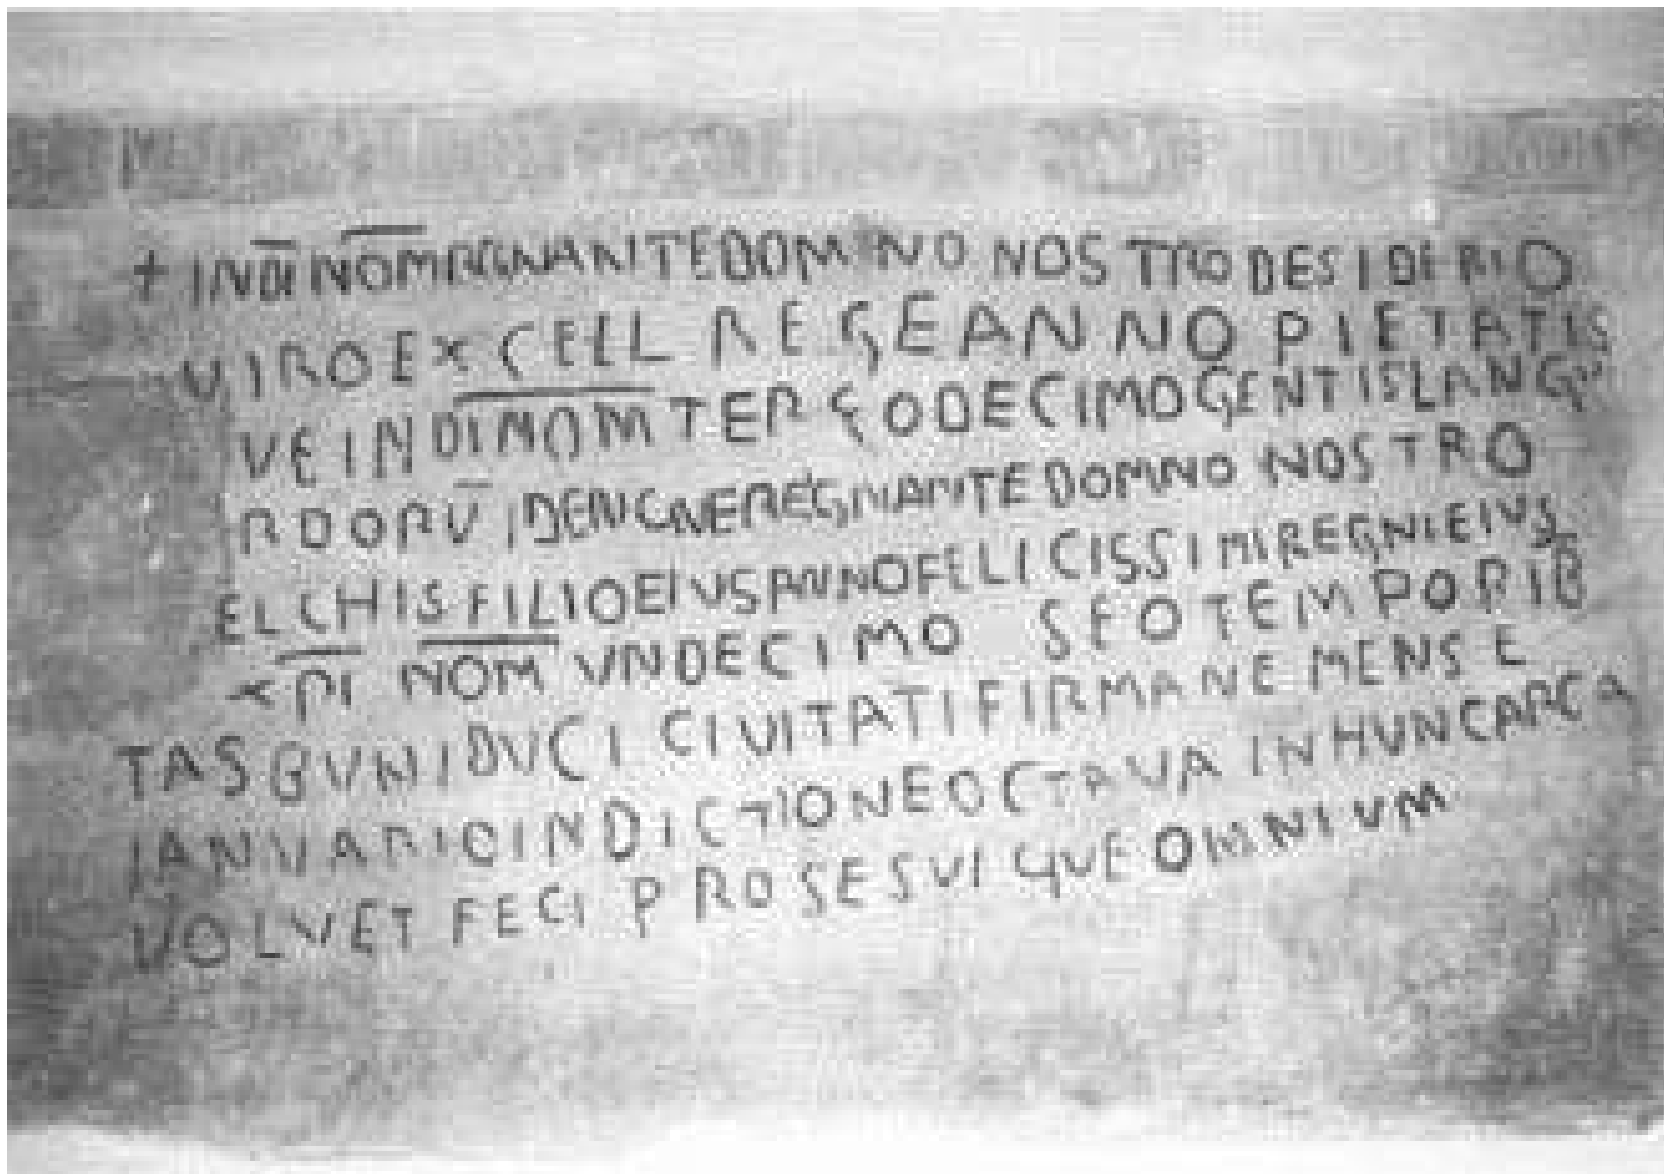 + IN DI NOM REGNANTE DOMINO NOSTRO DESIDERIO
VIRO EXCELL REGE ANNO PIETATIS
VE IN DI NOM TERCO DECIMO GENTIS LANGU
RDORU IDENIGNE REGNANTE DOMNO NOSTRO
ELCHIS FILIO EIUS ANNO FELICISSIMI REGNI EIUS
XPI NOM VNDECIMO SEO TEMPORIB
TASBUNI DUCI CIVITATI FIRMANE MENSE
IANUARIO INDICTIONE OCTAVA IN HUNC ARCA
VOLVET FECI PRO SE SUIQUE OMNIUM